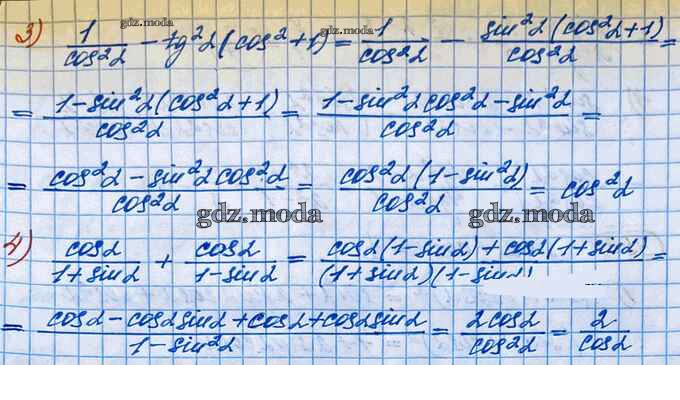 3) 1/cos²α − tg²α(cos²+1) = 1/cos²α − sin²α(cos²α+1)/cos²α =
gdz.moda
= 1−sin²α(cos²α+1)/cos²α = 1−sin²α cos²α−sin²α/cos²α =
= cos²α − sin²α cos²α/cos²α = cos²α(1−sin²α)/cos²α = cos²α
gdz.moda gdz.moda
4) cosα/1+sinα + cosα/1−sinα = cosα(1−sinα)+cosα(1+sinα)/(1+sinα)(1−sin =
= cosα−cosα sinα+cosα+cosα sinα/1−sin²α = 2cosα/cos²α = 2/cosα